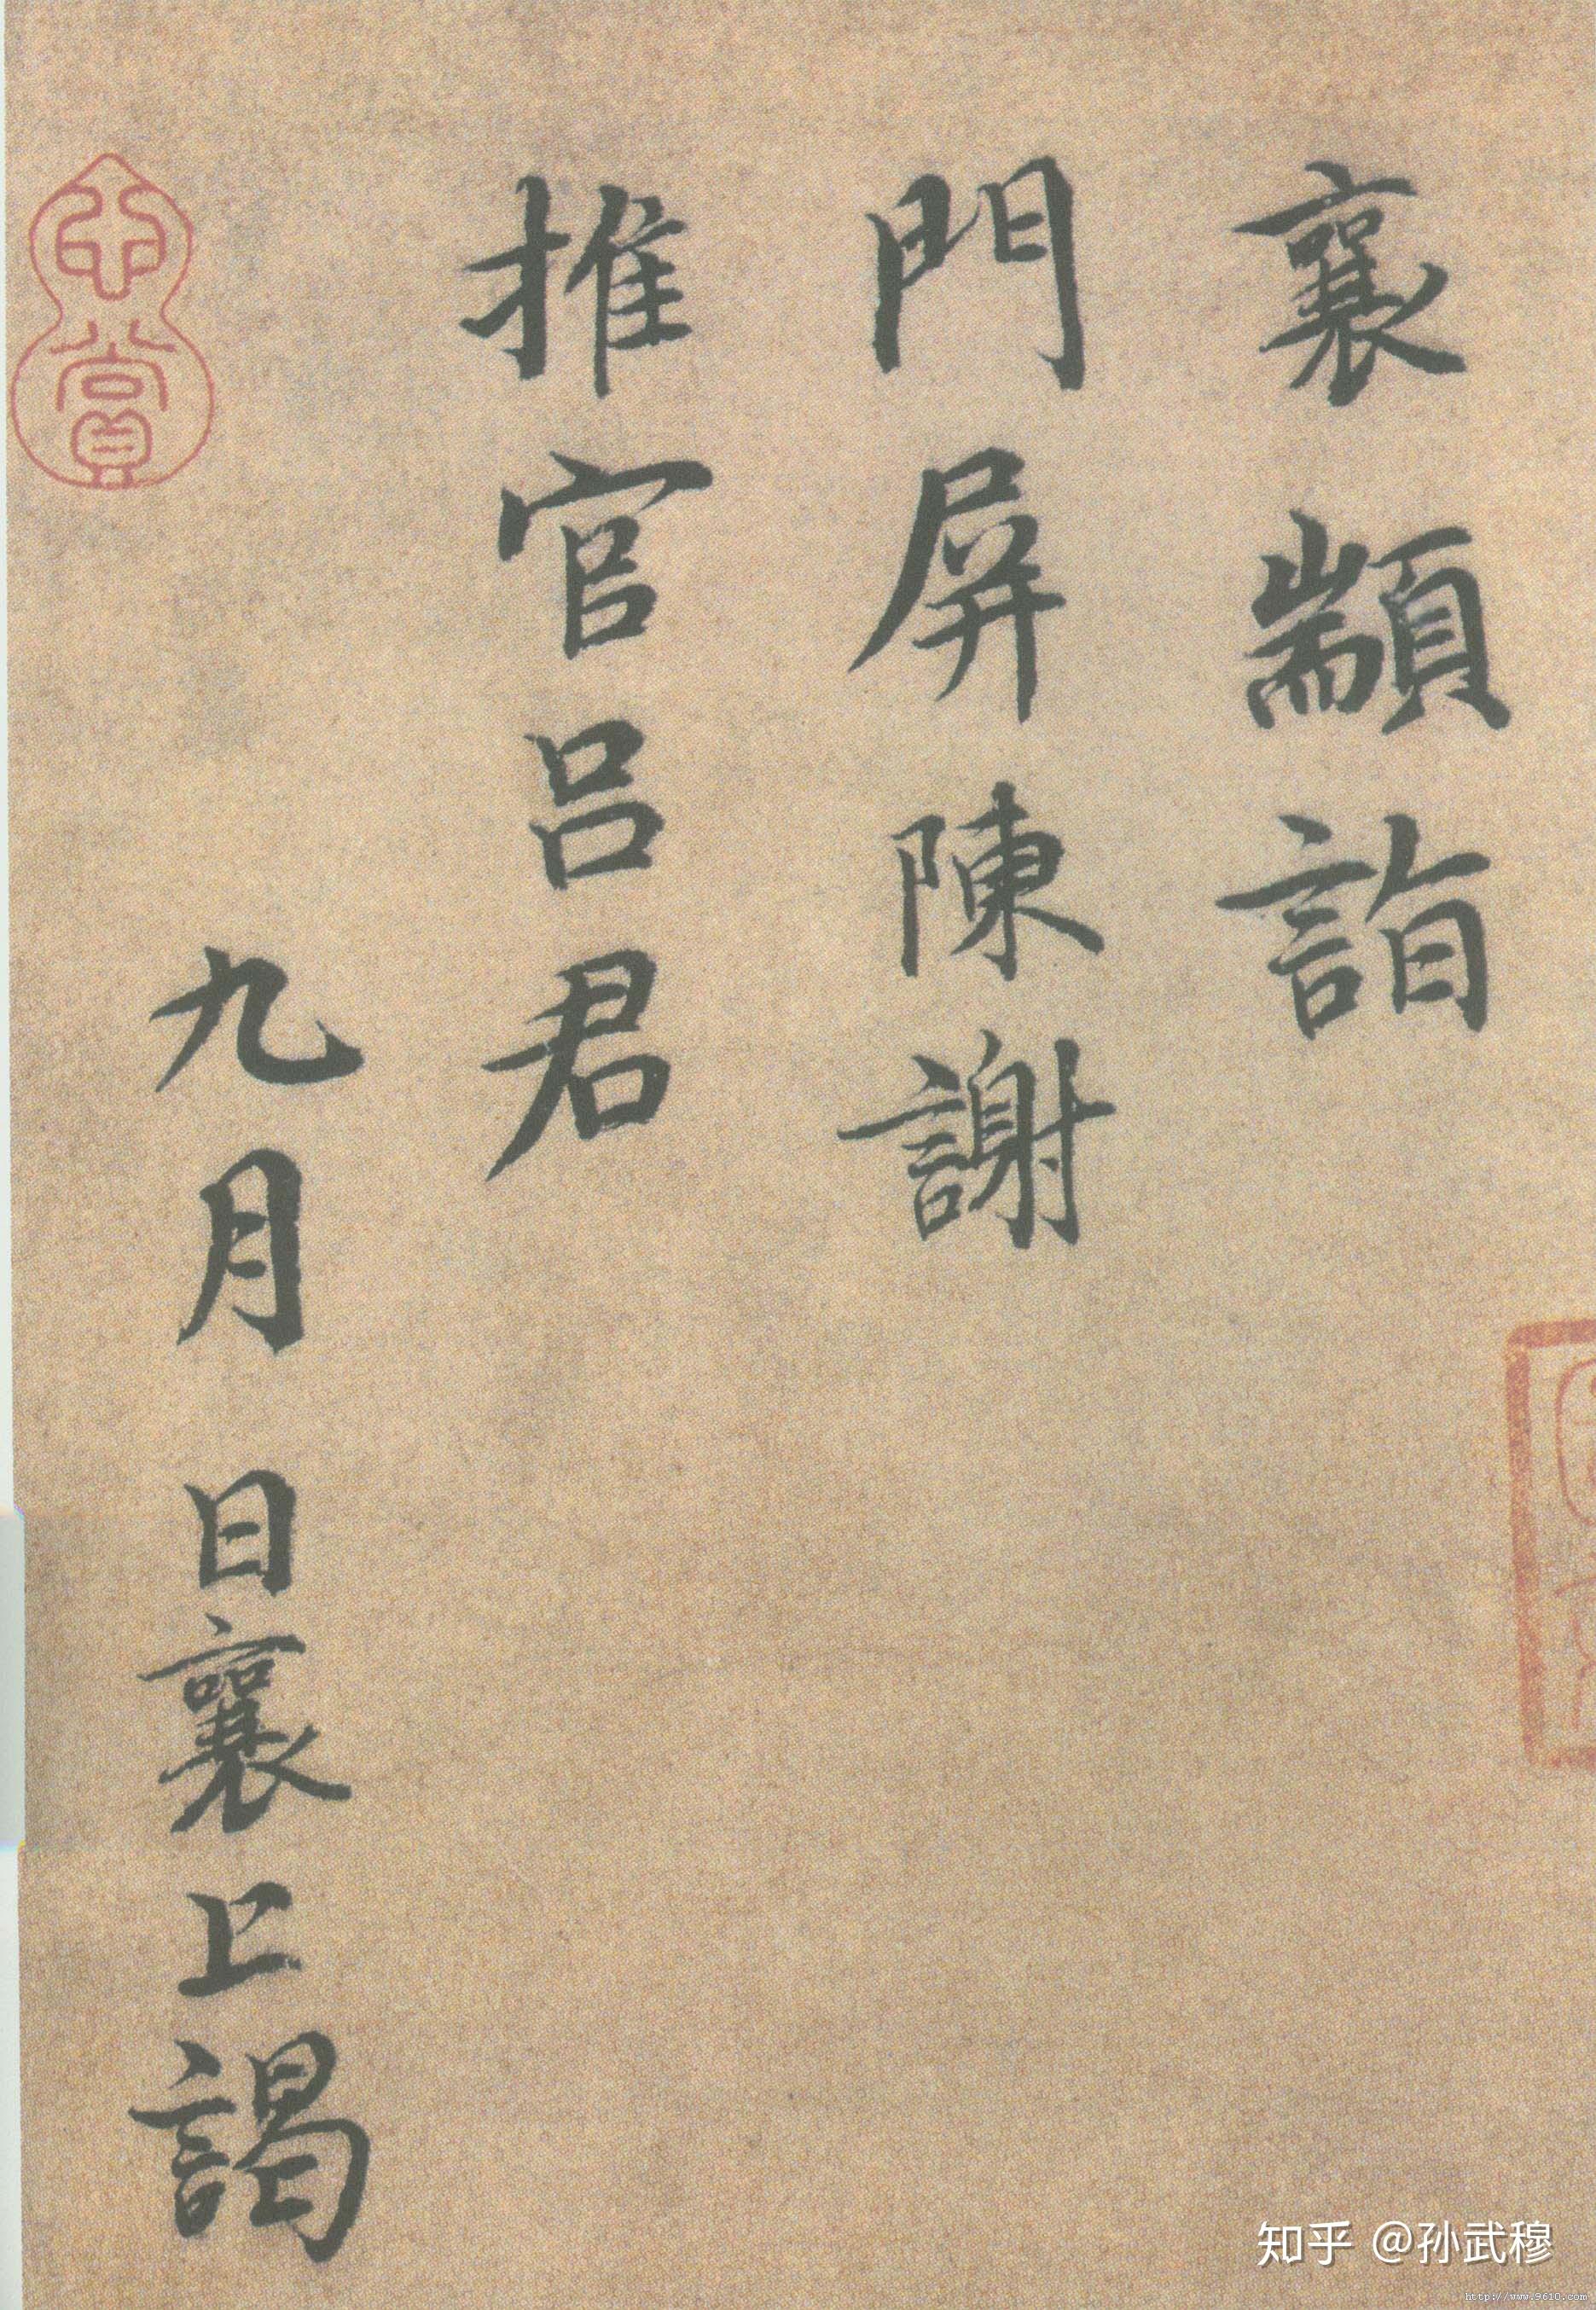 襄顓詣
門屏陳謝
推官呂君
九月 日襄上謁
知乎 @孙武穆
http://www.9610.com